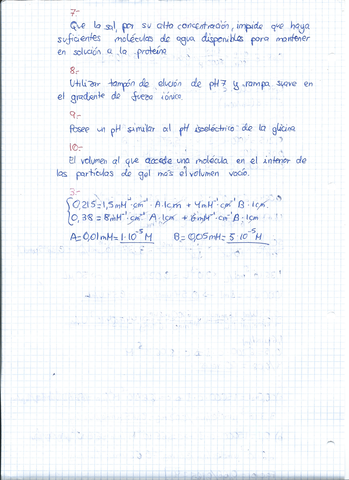 7.-
Que la sal, por su alta concentración, impide que haya
suficientes moléculas de agua disponibles para mantener
en solución a la proteína
8.-
Utilizar tampón de elución de pH 7 y rampa suave en
el gradiente de fuerza iónica.
9.-
Posee un pH similar al pH isoeléctrico de la glicina
10.-
El volumen al que accede una molécula en el interior de
las partículas de gel más el volumen vacío.
3.-
0,215 = 1,5 mM⁻¹·cm⁻¹·A·1cm + 4mM⁻¹cm⁻¹B·1cm
0,38 = 8mM⁻¹·cm⁻¹ A·1cm + 6mM⁻¹cm⁻¹B·1cm
A=0,01mM=1·10⁻⁵M B=0,05mM=5·10⁻⁵M